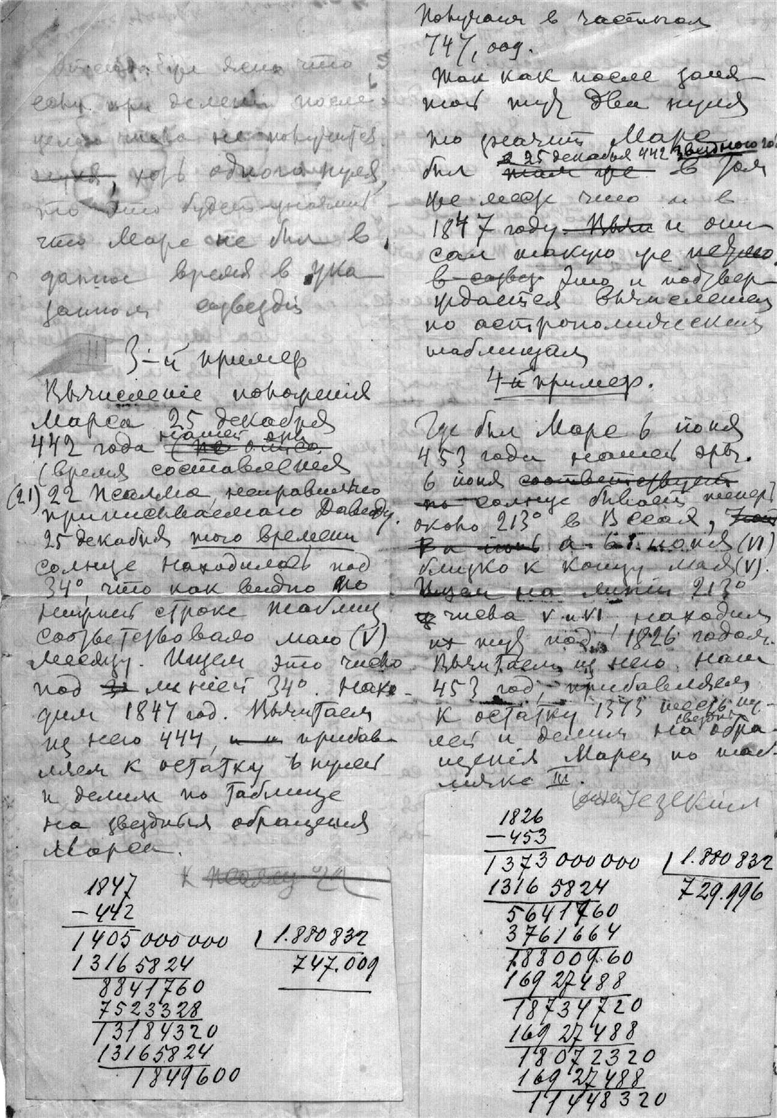 было ясно что
если при делении после
целого числа не получится
нуля, хоть одного нуля,
то это будет
что Марс не был в
данное время в ука
занном созвездии
3-й пример
Вычисленіе положенія
Марса 25 декабря
442 года нашей эры
(время составленія
(21) 22 Псалма, неправильно
приписываемаго Давиду.
25 декабря того времени
солнце находилось под
34°, что как видно по
строке таблиц
соответствовало маю (V)
месяцу. Ищем это число
под линіей 34°. Нахо-
дим 1847 год. Вычитаем
из него 444, прибав
ляем к остатку 6 нулей
и делим по Таблице
на звездныя обращения
Марса.
К псалму 21
1847
-442
1405 000 000 1.880832
13165824 747.009
8841760
7523328
13184320
13165824
1849600
Получаем в частном
747,009.
Так как после запя-
той тут два нуля
то значит Марс
был 25 декабря 442 звездного года в том
же месте что и в
1847 году и опи
сал такую же
в Это и подтвер-
ждается вычислением
по астрономическим
таблицам
4-й пример.
Где был Марс 6 июня
453 года нашей эры.
6 июня соответствует
по солнце бывает теперь
около 213° в Весах,
а 6 июня (VI)
близко к концу мая (V).
Ищем на линіи 213°
числа V и VI находим
их тут под 1826 годом.
Вычитаем из него наш
453 год, прибавляем
к остатку 1373 шесть ну-
лей и делим на звездныя обра-
щенія Марса по таб-
личке III.
Іезекіил
1826
-453
1373 000 000 1.880832
13165824 729.996
5641760
3761664
18800960
16927488
18734720
16927488
18072320
16927488
11448320